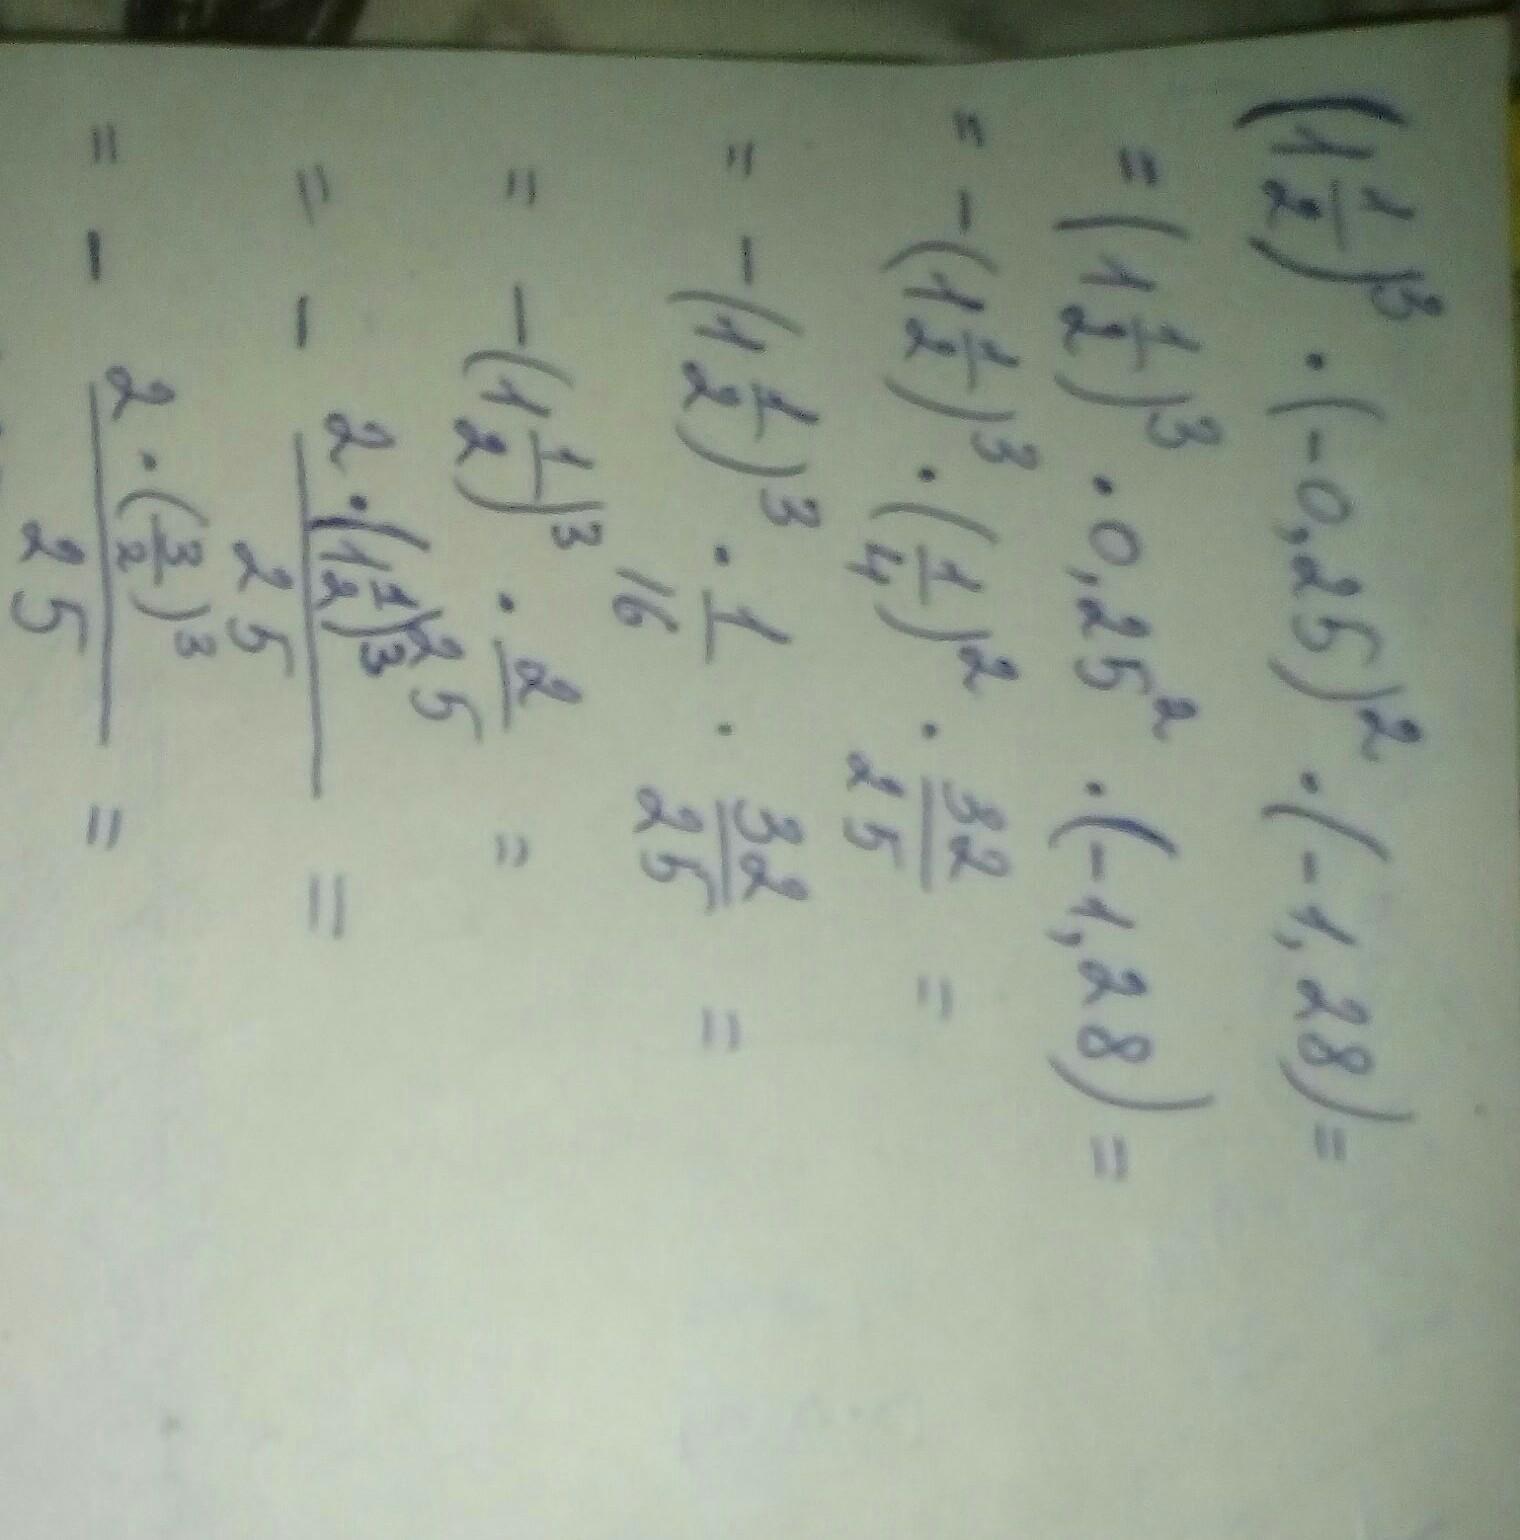 (1 1/2)³ · (-0,25)² · (-1,28) =
= (1 1/2)³ · 0,25² · (-1,28) =
= -(1 1/2)³ · (1/4)² · 32/25 =
= -(1 1/2)³ · 1/16 · 32/25 =
= -(1 1/2)³ · 2/25 =
= - 2·(1 1/2)³/25 =
= - 2·(3/2)³/25 =